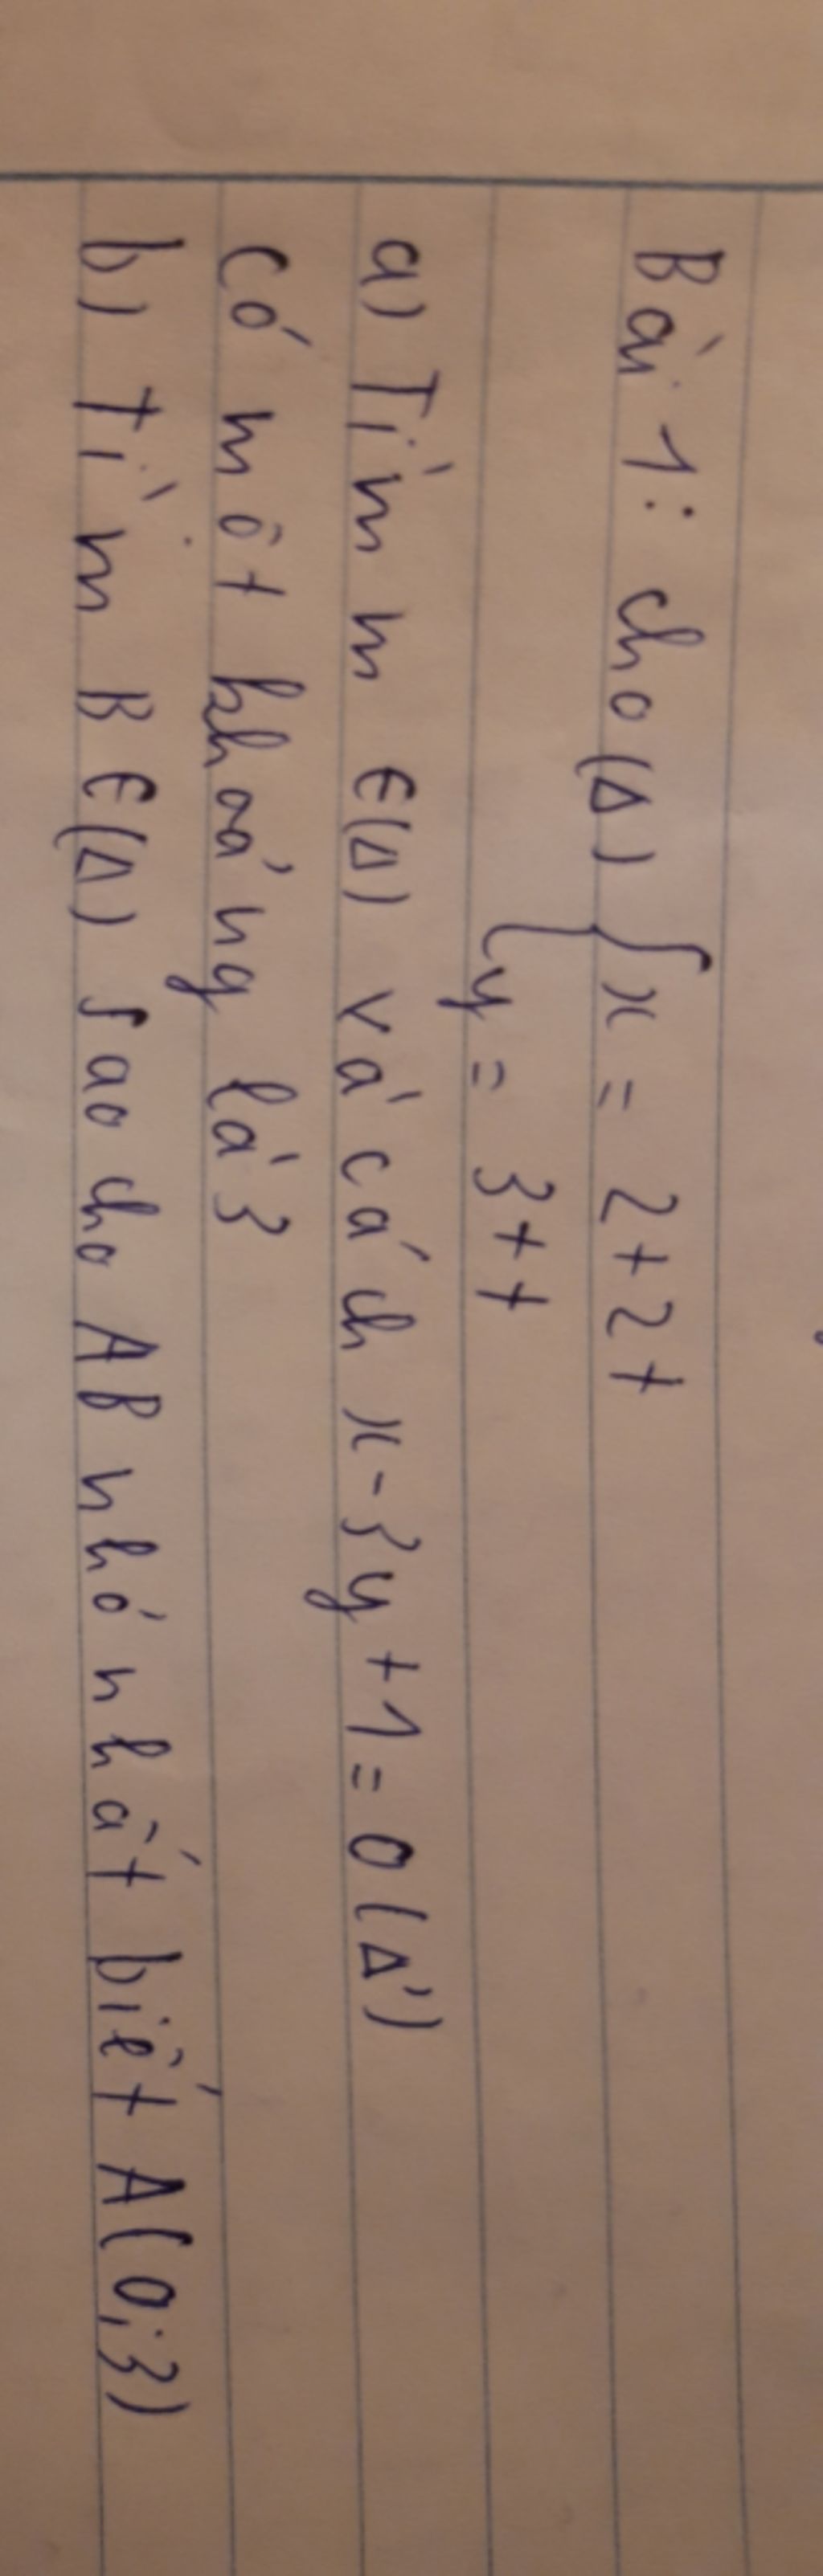 Bài 1: cho (Δ) { x = 2+2t
{ y = 3+t
a) Tìm m ∈(Δ) và cách x-3y+1=0 (Δ')
có một khoảng là 3
b) Tìm B ∈(Δ) sao cho AB nhỏ nhất biết A(0;3)